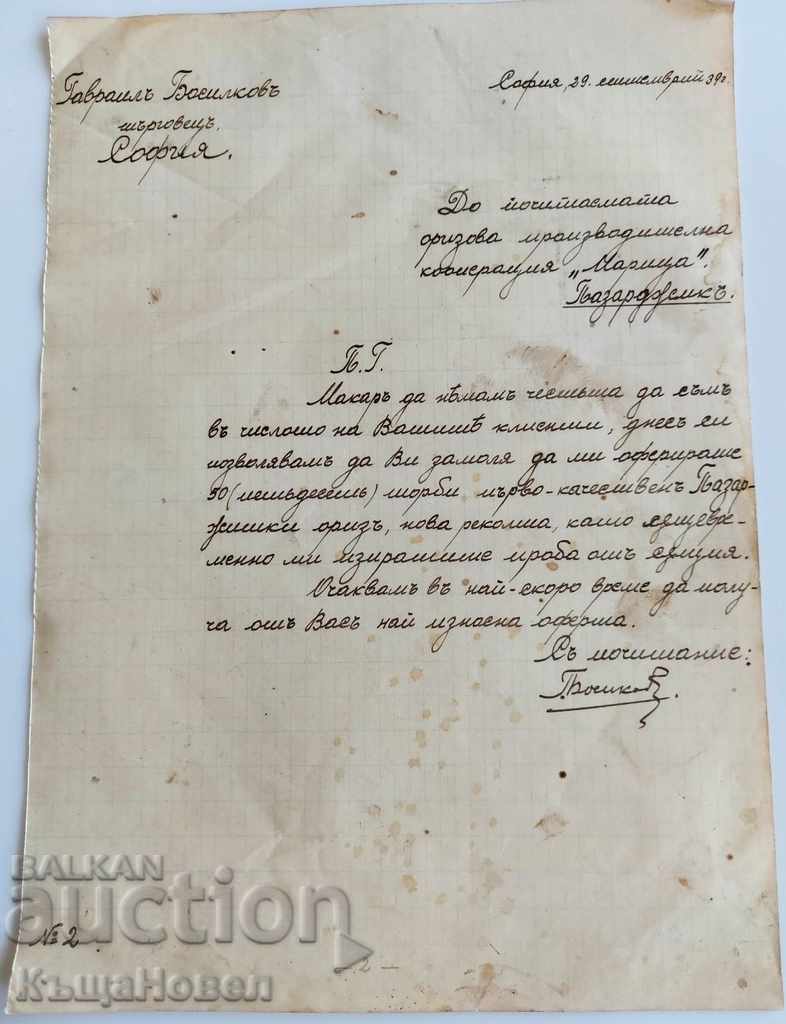 Гавраилъ Босилковъ
търговецъ.
София.
София, 29. септемврий 39г.
До почитаемата
оризова производителна
кооперация „Марица".
Пазарджикъ.
П.Г.
Макаръ да нѣмамъ честьта да съмъ
въ числото на Вашитѣ клиенти, днесъ си
позволявамъ да Ви замоля да ми оферирате
50 (петьдесеть) торби първо-качественъ Пазар-
жишки оризъ, нова реколта, като същеврѣ-
менно ми изпратите проба отъ сѫщия.
Очаквамъ въ най-скоро време да полу-
ча отъ Васъ най износна оферта.
Съ почитание:
№ 2
- 2 -
BALKAN
auction
КъщаНовел